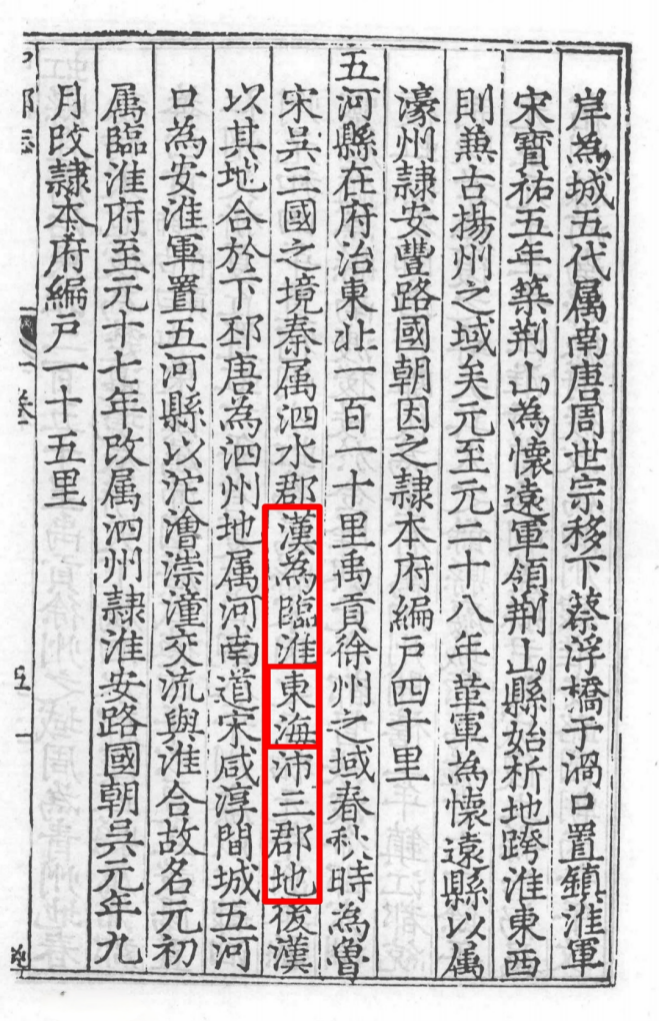 岸為城五代属南唐周世宗移下蔡浮橋于渦口置鎮淮軍
宋寳祐五年築荆山為懷遠軍領荆山縣始析地跨淮東西
則蒹古揚州之域矣元至元二十八年革軍為懷遠縣以属
濠州隸安豐路國朝因之隸本府編戸四十里
五河縣在府治東北一百一十里禹貢徐州之域春秋時為魯
宋吳三國之境秦属泗水郡漢為臨淮東海沛三郡地後漢
以其地合於下邳唐為泗州地属河南道宋咸淳間城五河
口為安淮軍置五河縣以沱澮漴潼交流與淮合故名元初
属臨淮府至元十七年改属泗州隸淮安路國朝吳元年九
月改隸本府編戸一十五里